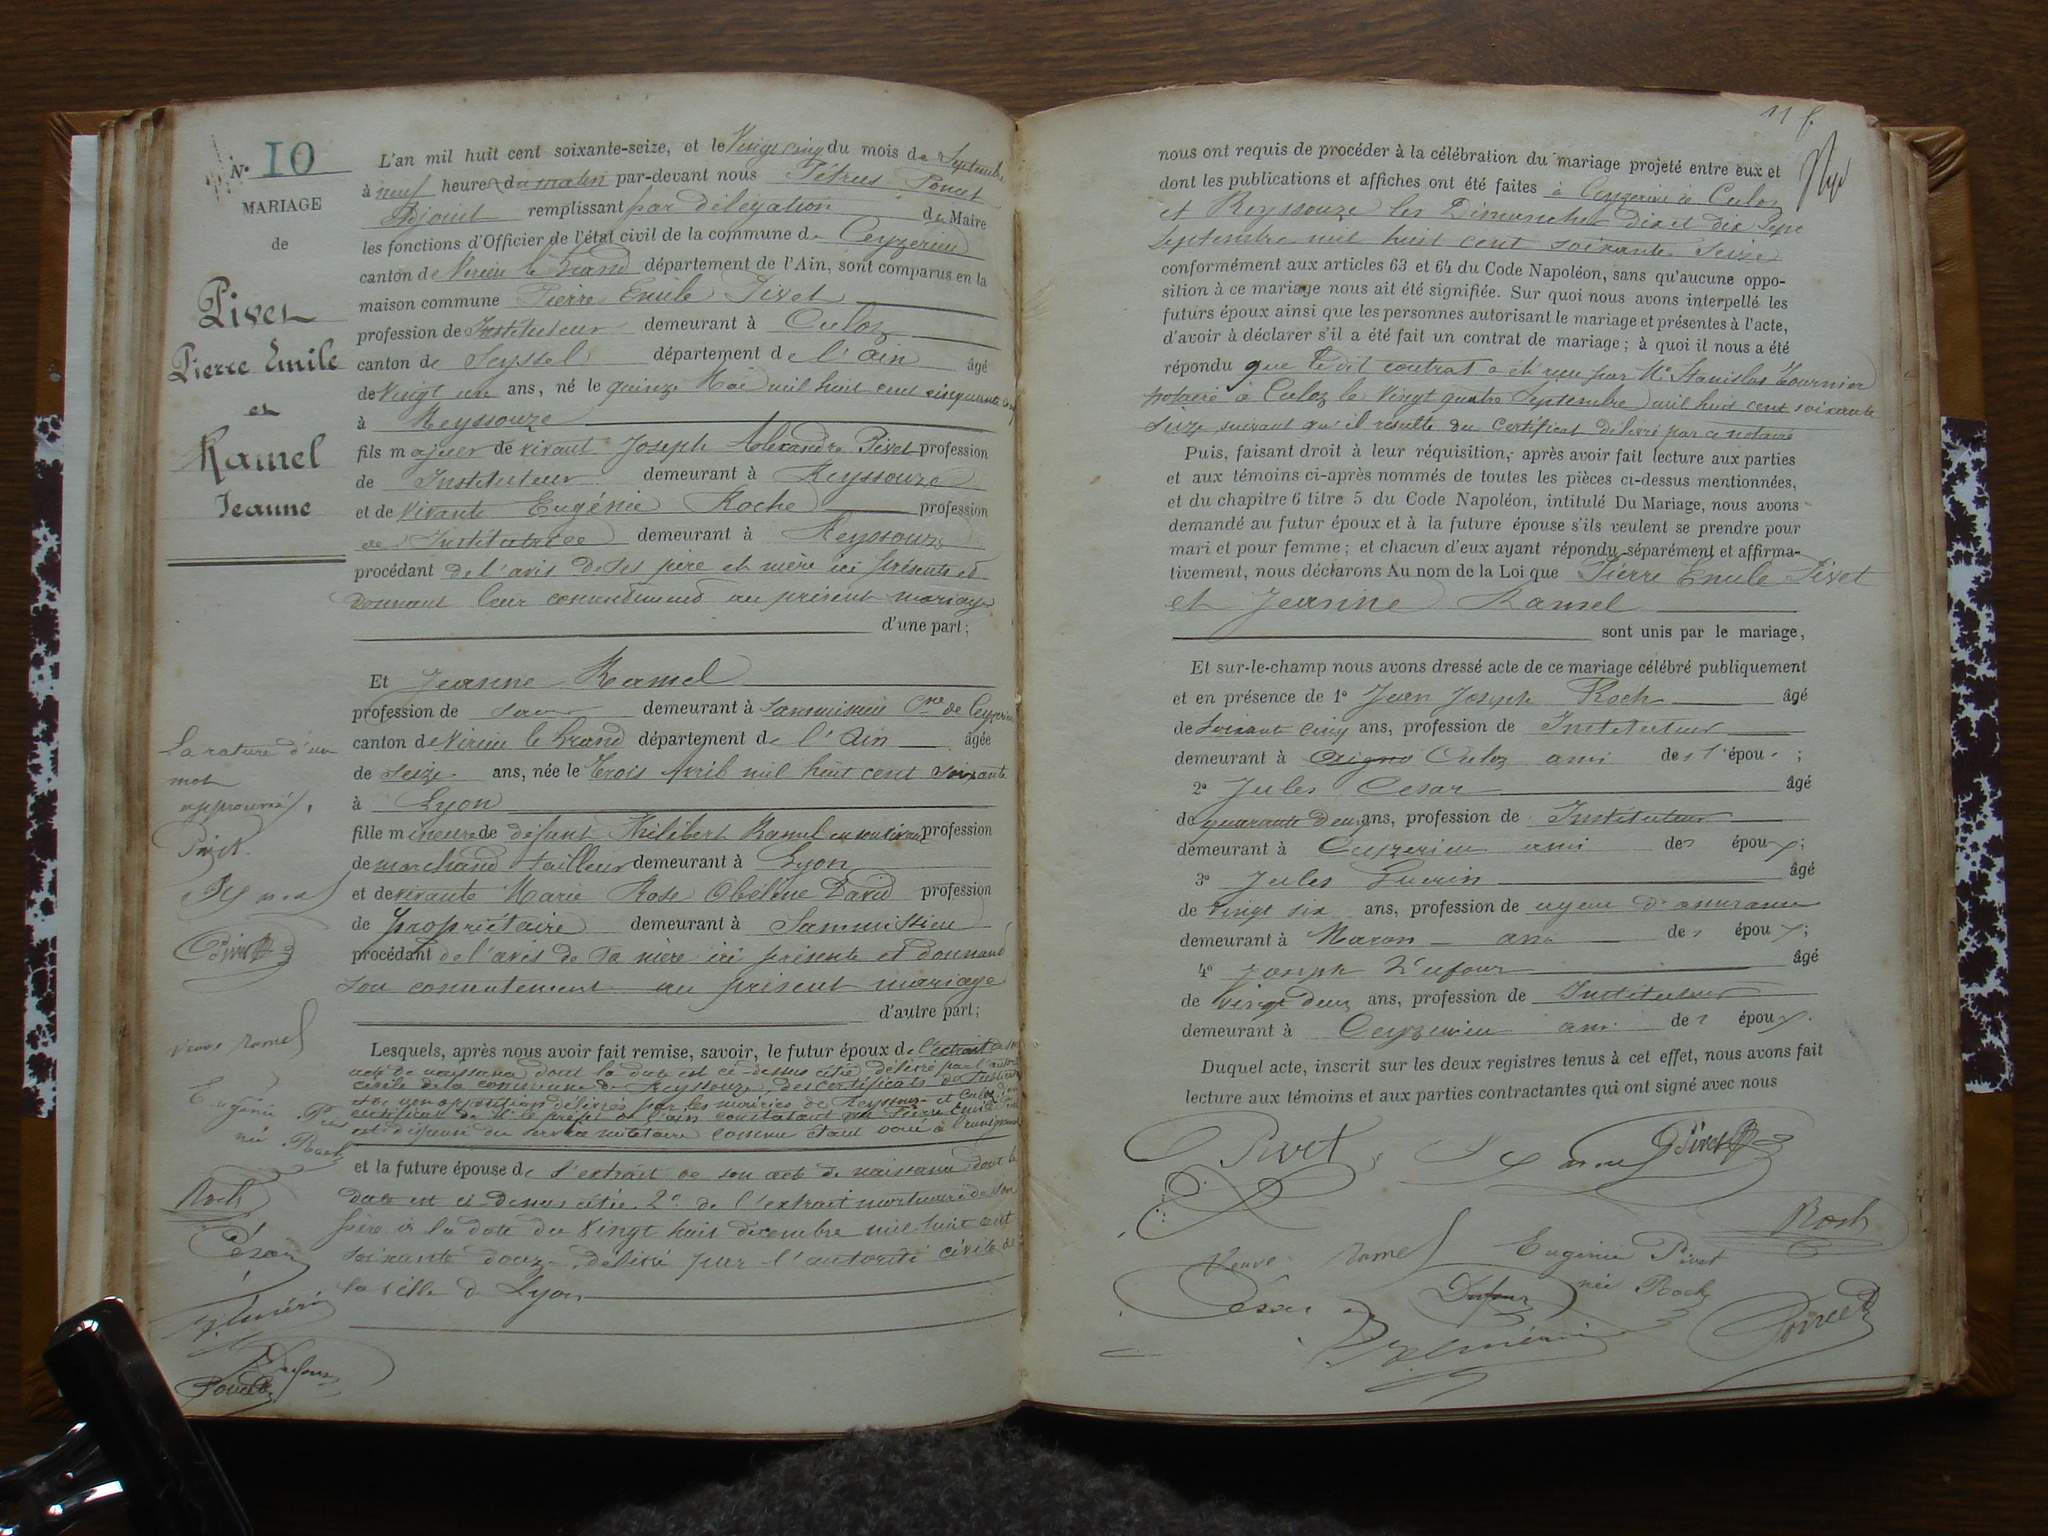 N° 10
MARIAGE
de
Pivet
Pierre Emile
et
Ramel
Jeanne
L'an mil huit cent soixante-seize, et le Vingt cinq du mois de Septembre
à neuf heures du matin par-devant nous Pétrus Poncet
Adjoint remplissant par délégation du Maire
les fonctions d'Officier de l'état civil de la commune de Ceyzerieu
canton de Virieu le Grand département de l'Ain, sont comparus en la
maison commune Pierre Emile Pivet
profession de Instituteur demeurant à Culoz
canton de Seyssel département de l'Ain âgé
de Vingt un ans, né le quinze Mai mil huit cent cinquante cinq
à Reyssouze
fils majeur de vivant Joseph Alexandre Pivet profession
de Instituteur demeurant à Reyssouze
et de vivante Eugénie Roche profession
de Institutrice demeurant à Reyssouze
procédant de l'avis de ses père et mère ici présents et
donnant leur consentement au présent mariage
d'une part;
Et Jeanne Ramel
profession de demeurant à Cne de Ceyzerieu
canton de Virieu le Grand département de l'Ain âgée
de Seize ans, née le trois Avril mil huit cent soixante
à Lyon
fille mineure de défunt Philibert Ramel en son vivant profession
de marchand tailleur demeurant à Lyon
et de vivante Marie Rose David profession
de propriétaire demeurant à
procédant de l'avis de sa mère ici présente et donnant
son consentement au présent mariage
d'autre part;
Lesquels, après nous avoir fait remise, savoir, le futur époux de l'extrait de son
acte de naissance dont la date est ci-dessus citée, délivré par l'autorité
civile de la commune de Reyssouze, des certificats de
et de non opposition délivrés par les mairies de Reyssouze et Culoz, d'un
certificat de Mr le préfet de l'ain constatant que Pierre Emile Pivet
est dispensé du service militaire comme étant voué à
et la future épouse de l'extrait de son acte de naissance dont la
date est ci dessus citée 2° de l'extrait mortuaire de son
père à la date du vingt huit décembre mil huit cent
soixante douze, délivré par l'autorité civile de
la ville de Lyon
La rature d'un
mot
approuvée,
Pivet
J Ramel
Pivet
Veuve Ramel
Eugénie Pivet
née Roch
Roch
César
Dufour
Poncet
115
nous ont requis de procéder à la célébration du mariage projeté entre eux et
dont les publications et affiches ont été faites à Ceyzerieu à Culoz
et Reyssouze les Dimanches Dix et dix Sept
Septembre mil huit cent soixante Seize
conformément aux articles 63 et 64 du Code Napoléon, sans qu'aucune oppo-
sition à ce mariage nous ait été signifiée. Sur quoi nous avons interpellé les
futurs époux ainsi que les personnes autorisant le mariage et présentes à l'acte,
d'avoir à déclarer s'il a été fait un contrat de mariage; à quoi il nous a été
répondu que le dit contrat a été reçu par Me Stanislas Tournier
notaire à Culoz le vingt quatre Septembre mil huit cent soixante
Seize suivant qu'il résulte du certificat délivré par ce notaire
Puis, faisant droit à leur réquisition, après avoir fait lecture aux parties
et aux témoins ci-après nommés de toutes les pièces ci-dessus mentionnées,
et du chapitre 6 titre 5 du Code Napoléon, intitulé Du Mariage, nous avons
demandé au futur époux et à la future épouse s'ils veulent se prendre pour
mari et pour femme; et chacun d'eux ayant répondu séparément et affirma-
tivement, nous déclarons Au nom de la Loi que Pierre Emile Pivet
et Jeanne Ramel
sont unis par le mariage,
Et sur-le-champ nous avons dressé acte de ce mariage célébré publiquement
et en présence de 1° Jean Joseph Roch âgé
de Soixante cinq ans, profession de Instituteur
demeurant à Culoz ami de l'époux;
2° Jules Cesar âgé
de quarante deux ans, profession de Instituteur
demeurant à Ceyzerieu ami des époux;
3° Jules âgé
de Vingt six ans, profession de agent d'assurance
demeurant à ami des époux;
4° Joseph Dufour âgé
de vingt deux ans, profession de Instituteur
demeurant à Ceyzerieu ami des époux.
Duquel acte, inscrit sur les deux registres tenus à cet effet, nous avons fait
lecture aux témoins et aux parties contractantes qui ont signé avec nous
Pivet J Ramel Pivet
Roch
Veuve Ramel Eugénie Pivet
née Roch
César Dufour
Poncet